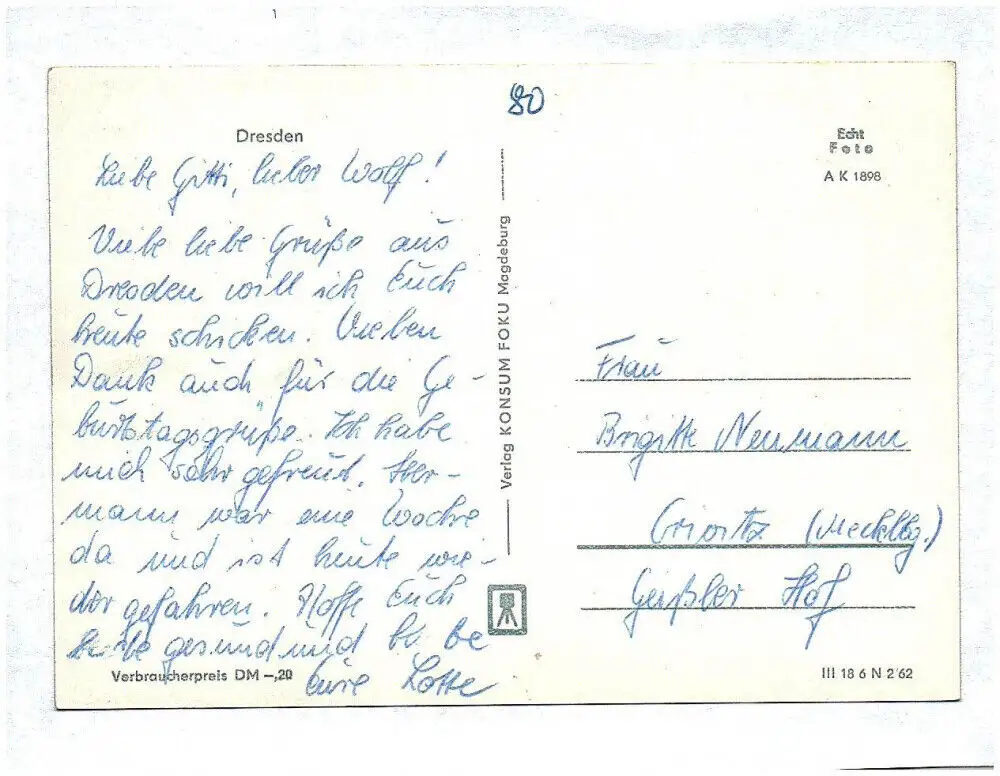 80
Dresden
Liebe Gitti, lieber Wolf!
Viele liebe Grüße aus
Dresden will ich Euch
heute schicken. Vielen
Dank auch für die Ge-
burtstagsgrüße. Ich habe
mich sehr gefreut. Her-
mann war eine Woche
da und ist heute wie-
der gefahren. Hoffe Euch
gesund und
Eure Lotte
Verbraucherpreis DM –,20
Verlag KONSUM FOKU Magdeburg
Echt
Foto
A K 1898
Frau
Brigitte Neumann
Crivitz (Mecklbg.)
Geißler Hof
III 18 6 N 2 62